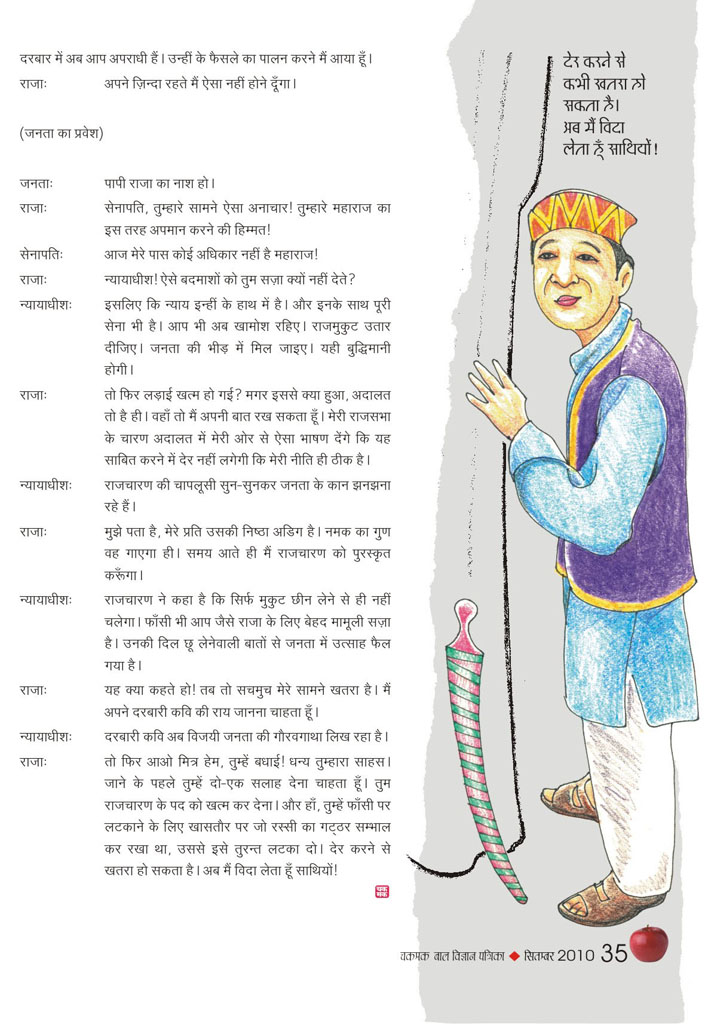 दरबार में अब आप अपराधी हैं। उन्हीं के फैसले का पालन करने मैं आया हूँ।
राजाः अपने ज़िन्दा रहते मैं ऐसा नहीं होने दूँगा।
(जनता का प्रवेश)
जनताः पापी राजा का नाश हो।
राजाः सेनापति, तुम्हारे सामने ऐसा अनाचार! तुम्हारे महाराज का
इस तरह अपमान करने की हिम्मत!
सेनापतिः आज मेरे पास कोई अधिकार नहीं है महाराज!
राजाः न्यायाधीश! ऐसे बदमाशों को तुम सज़ा क्यों नहीं देते?
न्यायाधीशः इसलिए कि न्याय इन्हीं के हाथ में है। और इनके साथ पूरी
सेना भी है। आप भी अब खामोश रहिए। राजमुकुट उतार
दीजिए। जनता की भीड़ में मिल जाइए। यही बुद्धिमानी
होगी।
राजाः तो फिर लड़ाई खत्म हो गई? मगर इससे क्या हुआ, अदालत
तो है ही। वहाँ तो मैं अपनी बात रख सकता हूँ। मेरी राजसभा
के चारण अदालत में मेरी ओर से ऐसा भाषण देंगे कि यह
साबित करने में देर नहीं लगेगी कि मेरी नीति ही ठीक है।
न्यायाधीशः राजचारण की चापलूसी सुन-सुनकर जनता के कान झनझना
रहे हैं।
राजाः मुझे पता है, मेरे प्रति उसकी निष्ठा अडिग है। नमक का गुण
वह गाएगा ही। समय आते ही मैं राजचारण को पुरस्कृत
करूँगा।
न्यायाधीशः राजचारण ने कहा है कि सिर्फ मुकुट छीन लेने से ही नहीं
चलेगा। फाँसी भी आप जैसे राजा के लिए बेहद मामूली सज़ा
है। उनकी दिल छू लेनेवाली बातों से जनता में उत्साह फैल
गया है।
राजाः यह क्या कहते हो! तब तो सचमुच मेरे सामने खतरा है। मैं
अपने दरबारी कवि की राय जानना चाहता हूँ।
न्यायाधीशः दरबारी कवि अब विजयी जनता की गौरवगाथा लिख रहा है।
राजाः तो फिर आओ मित्र हेम, तुम्हें बधाई! धन्य तुम्हारा साहस।
जाने के पहले तुम्हें दो-एक सलाह देना चाहता हूँ। तुम
राजचारण के पद को खत्म कर देना। और हाँ, तुम्हें फाँसी पर
लटकाने के लिए खासतौर पर जो रस्सी का गट्ठर सम्भाल
कर रखा था, उससे इसे तुरन्त लटका दो। देर करने से
खतरा हो सकता है। अब मैं विदा लेता हूँ साथियों!
चक
मक
देर करने से
कभी खतरा हो
सकता है।
अब मैं विदा
लेता हूँ साथियों!
चकमक बाल विज्ञान पत्रिका ◆ सितम्बर 2010 35